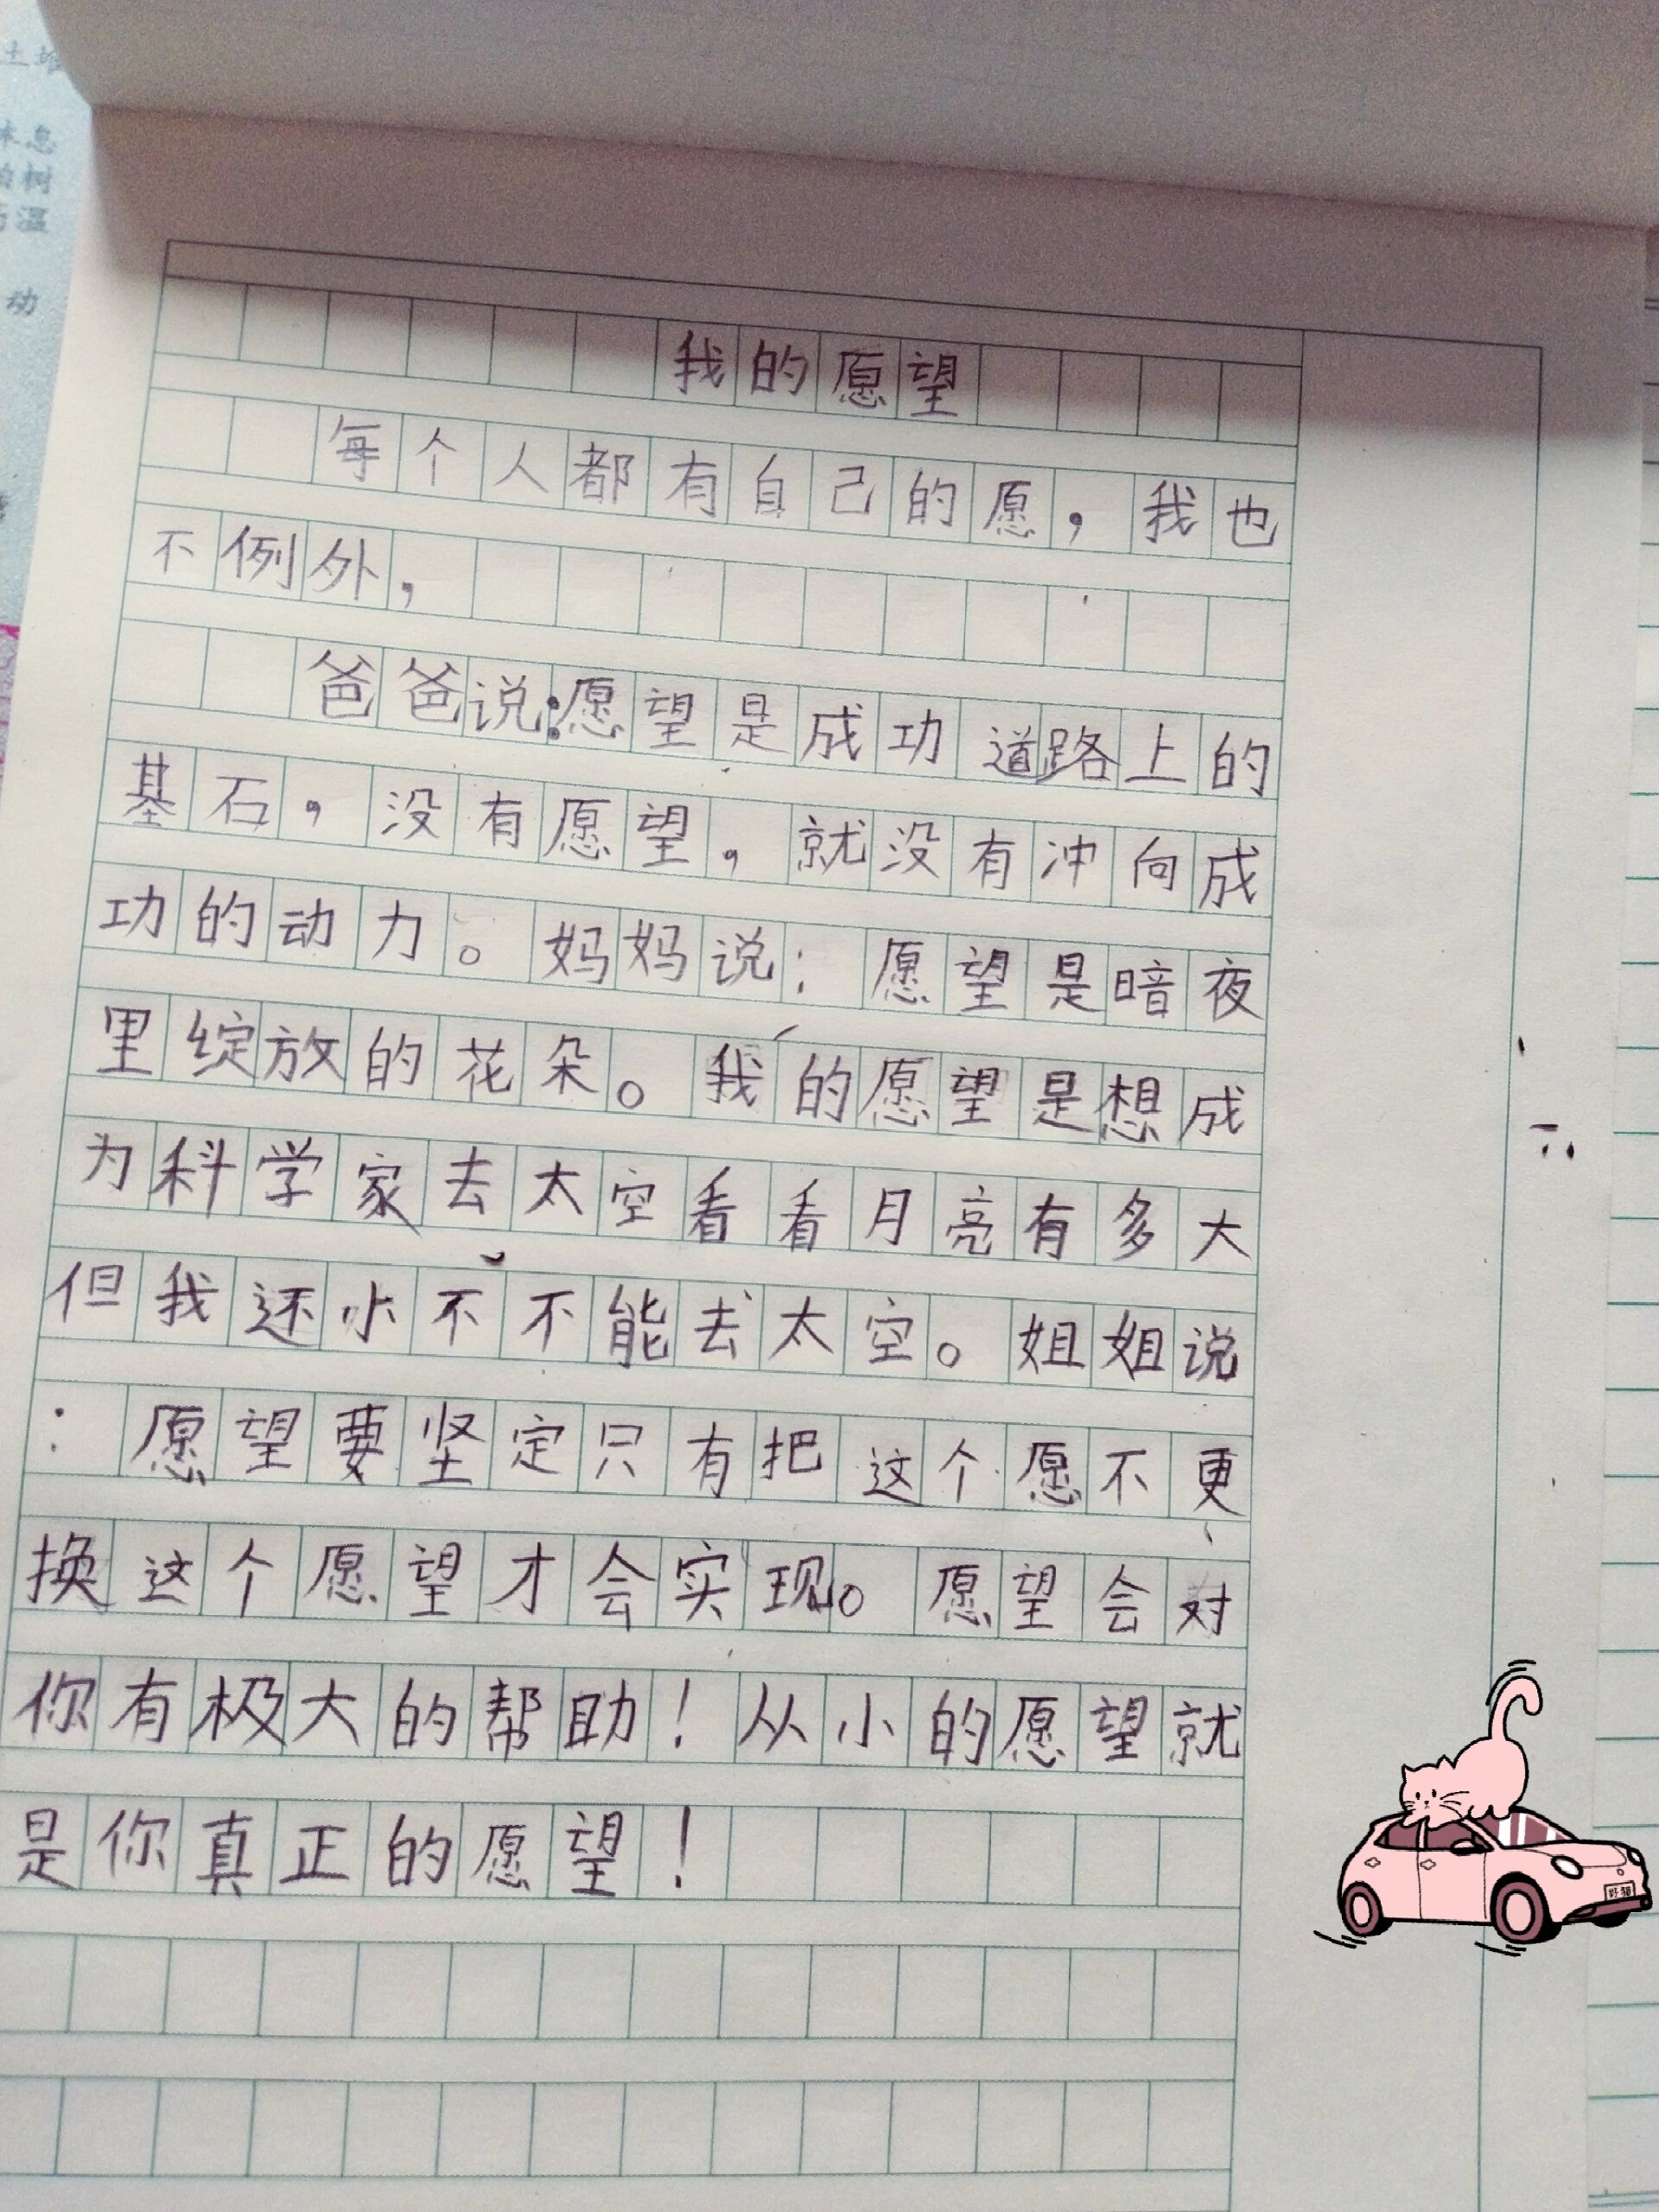 我的愿望
每个人都有自己的愿，我也
不例外，
爸爸说：愿望是成功道路上的
基石，没有愿望，就没有冲向成
功的动力。妈妈说：愿望是暗夜
里绽放的花朵。我的愿望是想成
为科学家去太空看看月亮有多大
但我还小不不能去太空。姐姐说
：愿望要坚定只有把这个愿不更
换这个愿望才会实现。愿望会对
你有极大的帮助！从小的愿望就
是你真正的愿望！
土堆
息
树
温
动
好猫